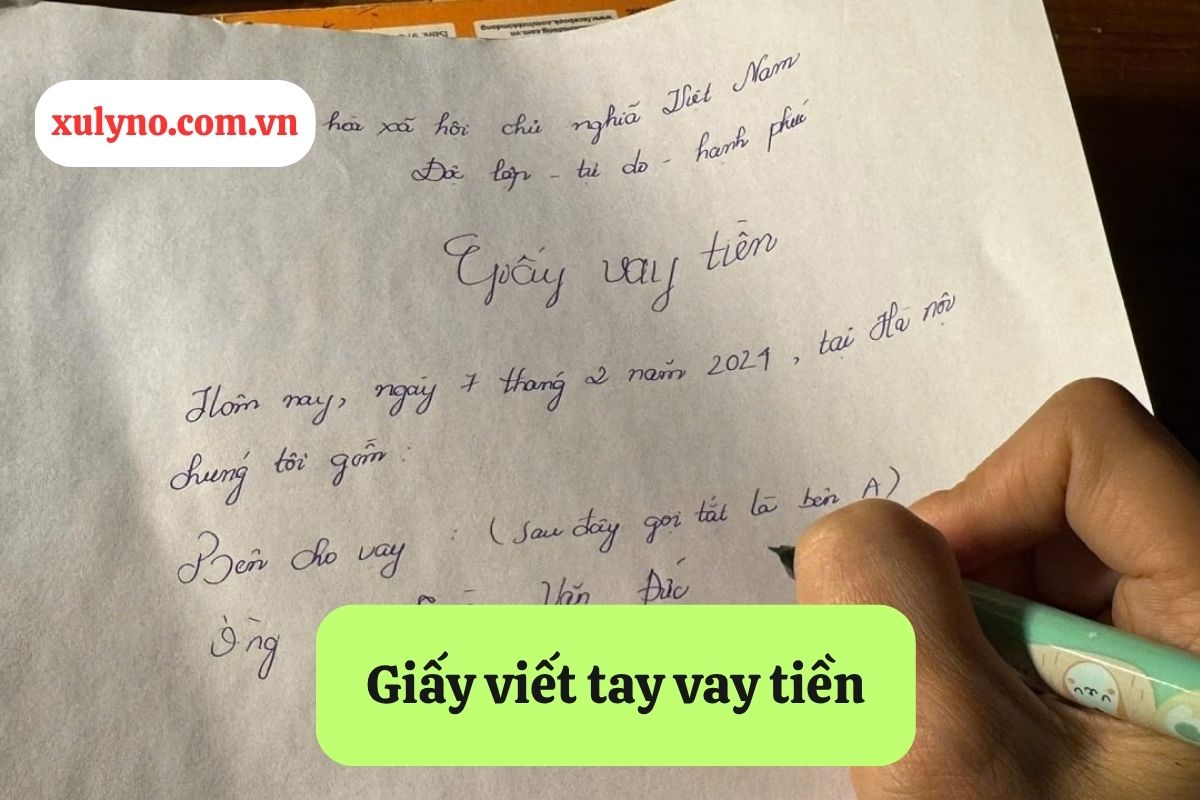 xulyno.com.vn
hòa xã hôi chủ nghĩa Việt Nam
Độc lập - tự do - hạnh phúc
Giấy vay tiền
Hôm nay, ngày 7 tháng 2 năm 2021, tại Hà nội
chúng tôi gồm:
Bên cho vay : (sau đây gọi tắt là bên A)
Ông Văn Đức
Giấy viết tay vay tiền